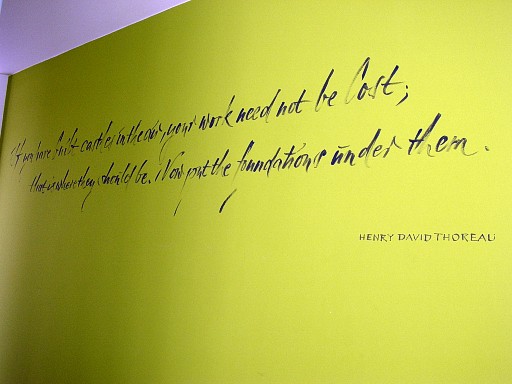 If you have built castles in the air, your work need not be lost;
that is where they should be. Now put the foundations under them.
HENRY DAVID THOREAU